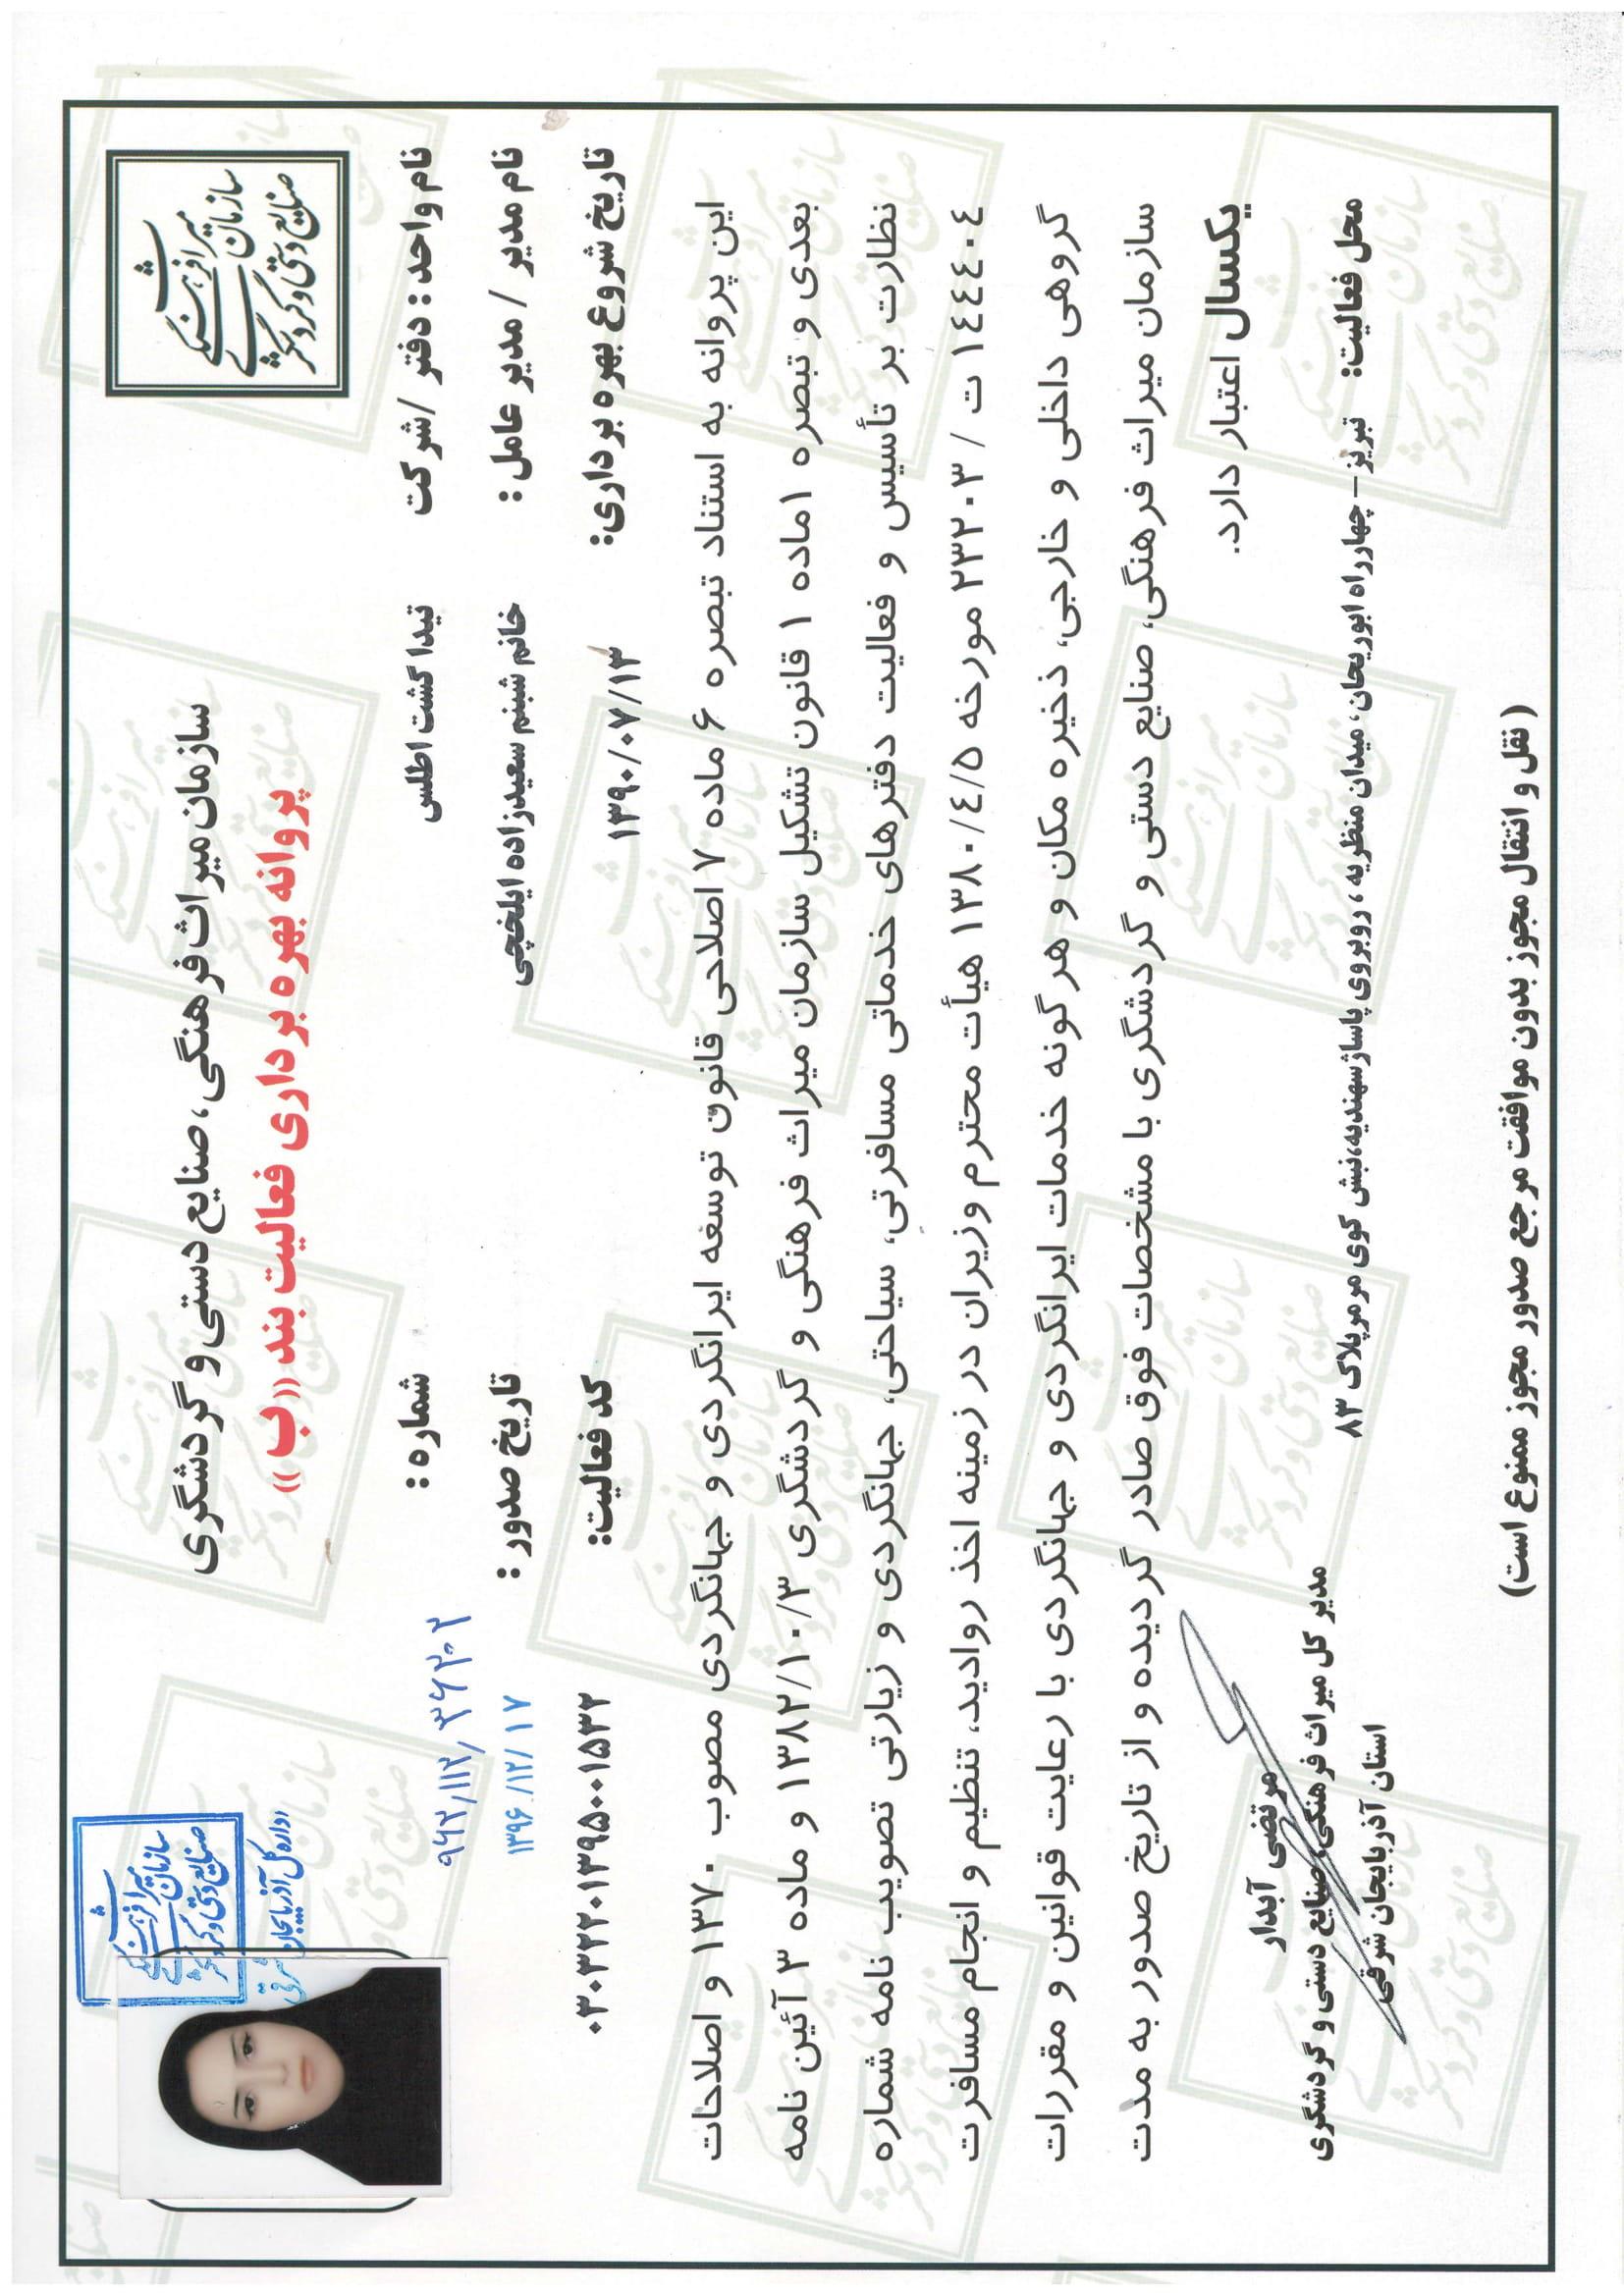 سازمان میراث فرهنگی
صنایع دستی و گردشگری
سازمان میراث فرهنگی، صنایع دستی و گردشگری
پروانه بهره برداری فعالیت بند «ب»
سازمان میراث فرهنگی
صنایع دستی و گردشگری
اداره کل آذربایجان شرقی
نام واحد : دفتر /شرکت تیدا گشت اطلس شماره :
نام مدیر / مدیر عامل : خانم شبنم سعیدزاده ایلخچی تاریخ صدور : ۱۳۹۶/۱۲/۱۷
تاریخ شروع بهره برداری: ۱۳۹۰/۰۷/۱۳ کد فعالیت: ۰۳۰۳۲۲۰۱۳۹۵۰۰۱۵۳۲
این پروانه به استناد تبصره ۶ ماده ۷ اصلاحی قانون توسعه ایرانگردی و جهانگردی مصوب ۱۳۷۰ و اصلاحات
بعدی و تبصره ۱ماده ۱ قانون تشکیل سازمان میراث فرهنگی و گردشگری ۱۳۸۲/۱۰/۳ و ماده ۳ آئین نامه
نظارت بر تأسیس و فعالیت دفترهای خدماتی مسافرتی، سیاحتی، جهانگردی و زیارتی تصویب نامه شماره
۱٤٤٤۰٤ ت / ۲۳۲۰۳ مورخه ۱۳۸۰/٤/۵ هیأت محترم وزیران در زمینه اخذ روادید، تنظیم و انجام مسافرت
گروهی داخلی و خارجی، ذخیره مکان و هر گونه خدمات ایرانگردی و جهانگردی با رعایت قوانین و مقررات
سازمان میراث فرهنگی، صنایع دستی و گردشگری با مشخصات فوق صادر گردیده و از تاریخ صدور به مدت
یکسال اعتبار دارد.
محل فعالیت: تبریز – چهارراه ابوریحان، میدان منظریه ، روبروی پاساژسهندیه،نبش کوی مرمرپلاک ۸۳
مرتضی آبدار
مدیر کل میراث فرهنگی، صنایع دستی و گردشگری
استان آذربایجان شرقی
( نقل و انتقال مجوز بدون موافقت مرجع صدور مجوز ممنوع است)